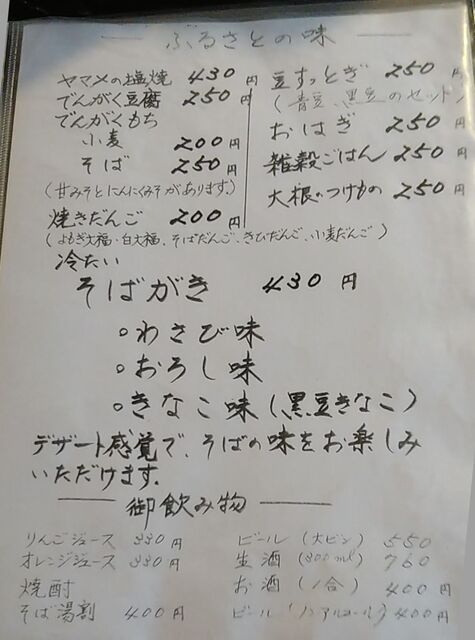 ふるさとの味
ヤマメの塩焼 430円
でんがく豆腐 250
でんがくもち
小麦 200円
そば 250円
(甘みそとにんにくみそがあります。)
焼きだんご 200円
(よもぎ大福・白大福、そばだんご、きびだんご、小麦だんご)
豆すっとぎ 250円
(青豆、黒豆のセット)
おはぎ 250円
雑穀ごはん 250円
大根のつけもの 250円
冷たい
そばがき 430円
○わさび味
○おろし味
○きなこ味(黒豆きなこ)
デザート感覚で、そばの味をお楽しみ
いただけます。
御飲み物
りんごジュース 330円
オレンジジュース 330円
焼酎
そば湯割 400円
ビール(大ビン) 550
生酒(300ml) 760
お酒(1合) 400円
ビール(ノンアルコール) 400円